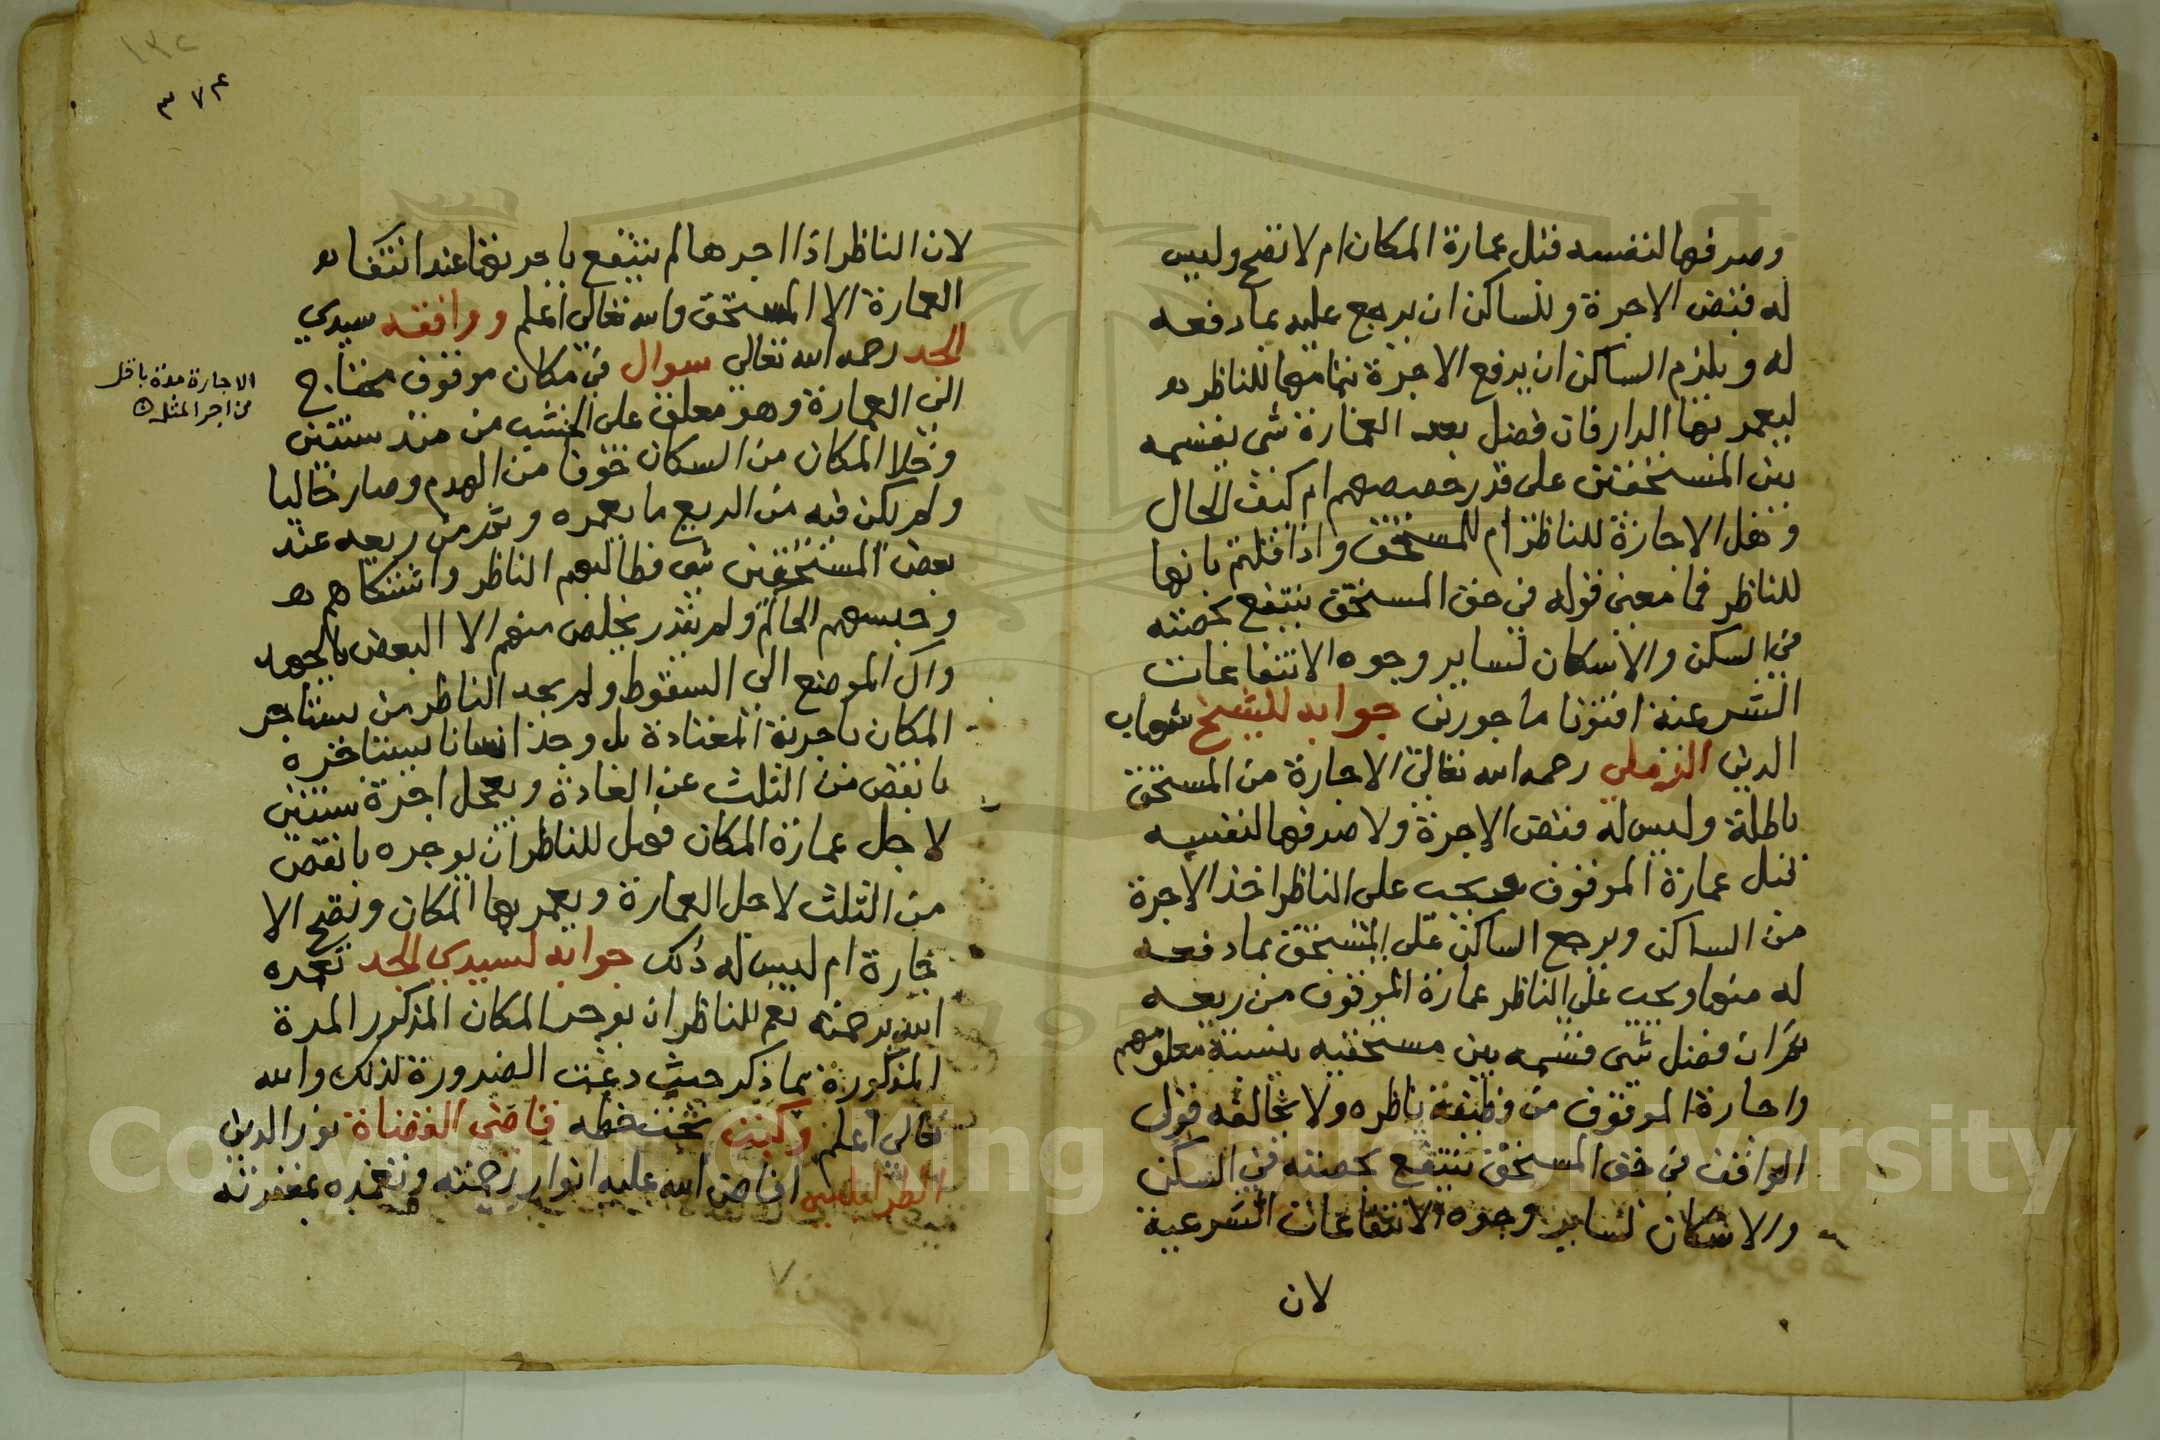 وصرفها لنفسه قبل عمارة المكان ام لا تصح وليس
له قبض الاجرة وللساكن ان يرجع عليه بما دفعه
له ويلزم الساكن ان يدفع الاجرة بتمامها للناظر
ليعمر بها الدار فان فضل بعد العمارة شي يقسمه
بين المستحقين على قدر حصصهم ام كيف الحال
وهل الاجارة للناظر ام للمستحق واذا قلتم بانها
للناظر فما معنى قوله في حق المستحق ينتفع بحصته
في السكن والاسكان لساير وجوه الانتفاعات
الشرعية افتونا ماجورين جوابه للشيخ شهاب
الدين الرملي رحمه الله تعالى الاجارة من المستحق
باطلة وليس له قبض الاجرة ولا صرفها لنفسه
قبل عمارة الموقوف ويجب على الناظر اخذ الاجرة
من الساكن ويرجع الساكن على المستحق بما دفعه
له منها ويجب على الناظر عمارة الموقوف من ريعه
ثم ان فضل شي قسمه بين مستحقيه بنسبة معلومهم
واجارة الموقوف من وظيفة ناظره ولا يخالفه قول
الواقف في حق المستحق ينتفع بحصته في السكن
والاسكان لساير وجوه الانتفاعات الشرعية
لان
٣٧٤
لان الناظر اذا اجرها لم ينتفع باجرتها عند انتفا
العمارة الا المستحق والله تعالى اعلم ووافقه سيدي
الجد رحمه الله تعالى سوال في مكان موقوف محتاج
الى العمارة وهو معلق على الخشب من منذ سنتين
وخلا المكان من السكان خوفا من الهدم وصار خاليا
ولم يكن فيه من الريع ما يعمره وثم من ريعه عند
بعض المستحقين شي فطالبهم الناظر واشتكاهم
وحبسهم الحاكم ولم يقدر يخلص منهم الا البعض بالجهد
وآل الموضع الى السقوط ولم يجد الناظر من يستاجر
المكان باجرته المعتادة بل وجد انسانا يستاجره
بانقص من الثلث عن العادة ويعجل اجرة سنتين
لاجل عمارة المكان فهل للناظر ان يوجره بانقص
من الثلث لاجل العمارة ويعمر بها المكان وتصح الا
جارة ام ليس له ذلك جوابه لسيدي الجد تغمده
الله برحمته نعم للناظر ان يوجر المكان المذكور المدة
المذكورة بما ذكر حيث دعت الضرورة لذلك والله
تعالى اعلم وكتب تحت خطه قاضي القضاة نور الدين
الطرابلسي افاض الله عليه انوار رحمته وتغمده بمغفرته
الاجارة مدة باقل
من اجر المثل
Copyright © King Saud University